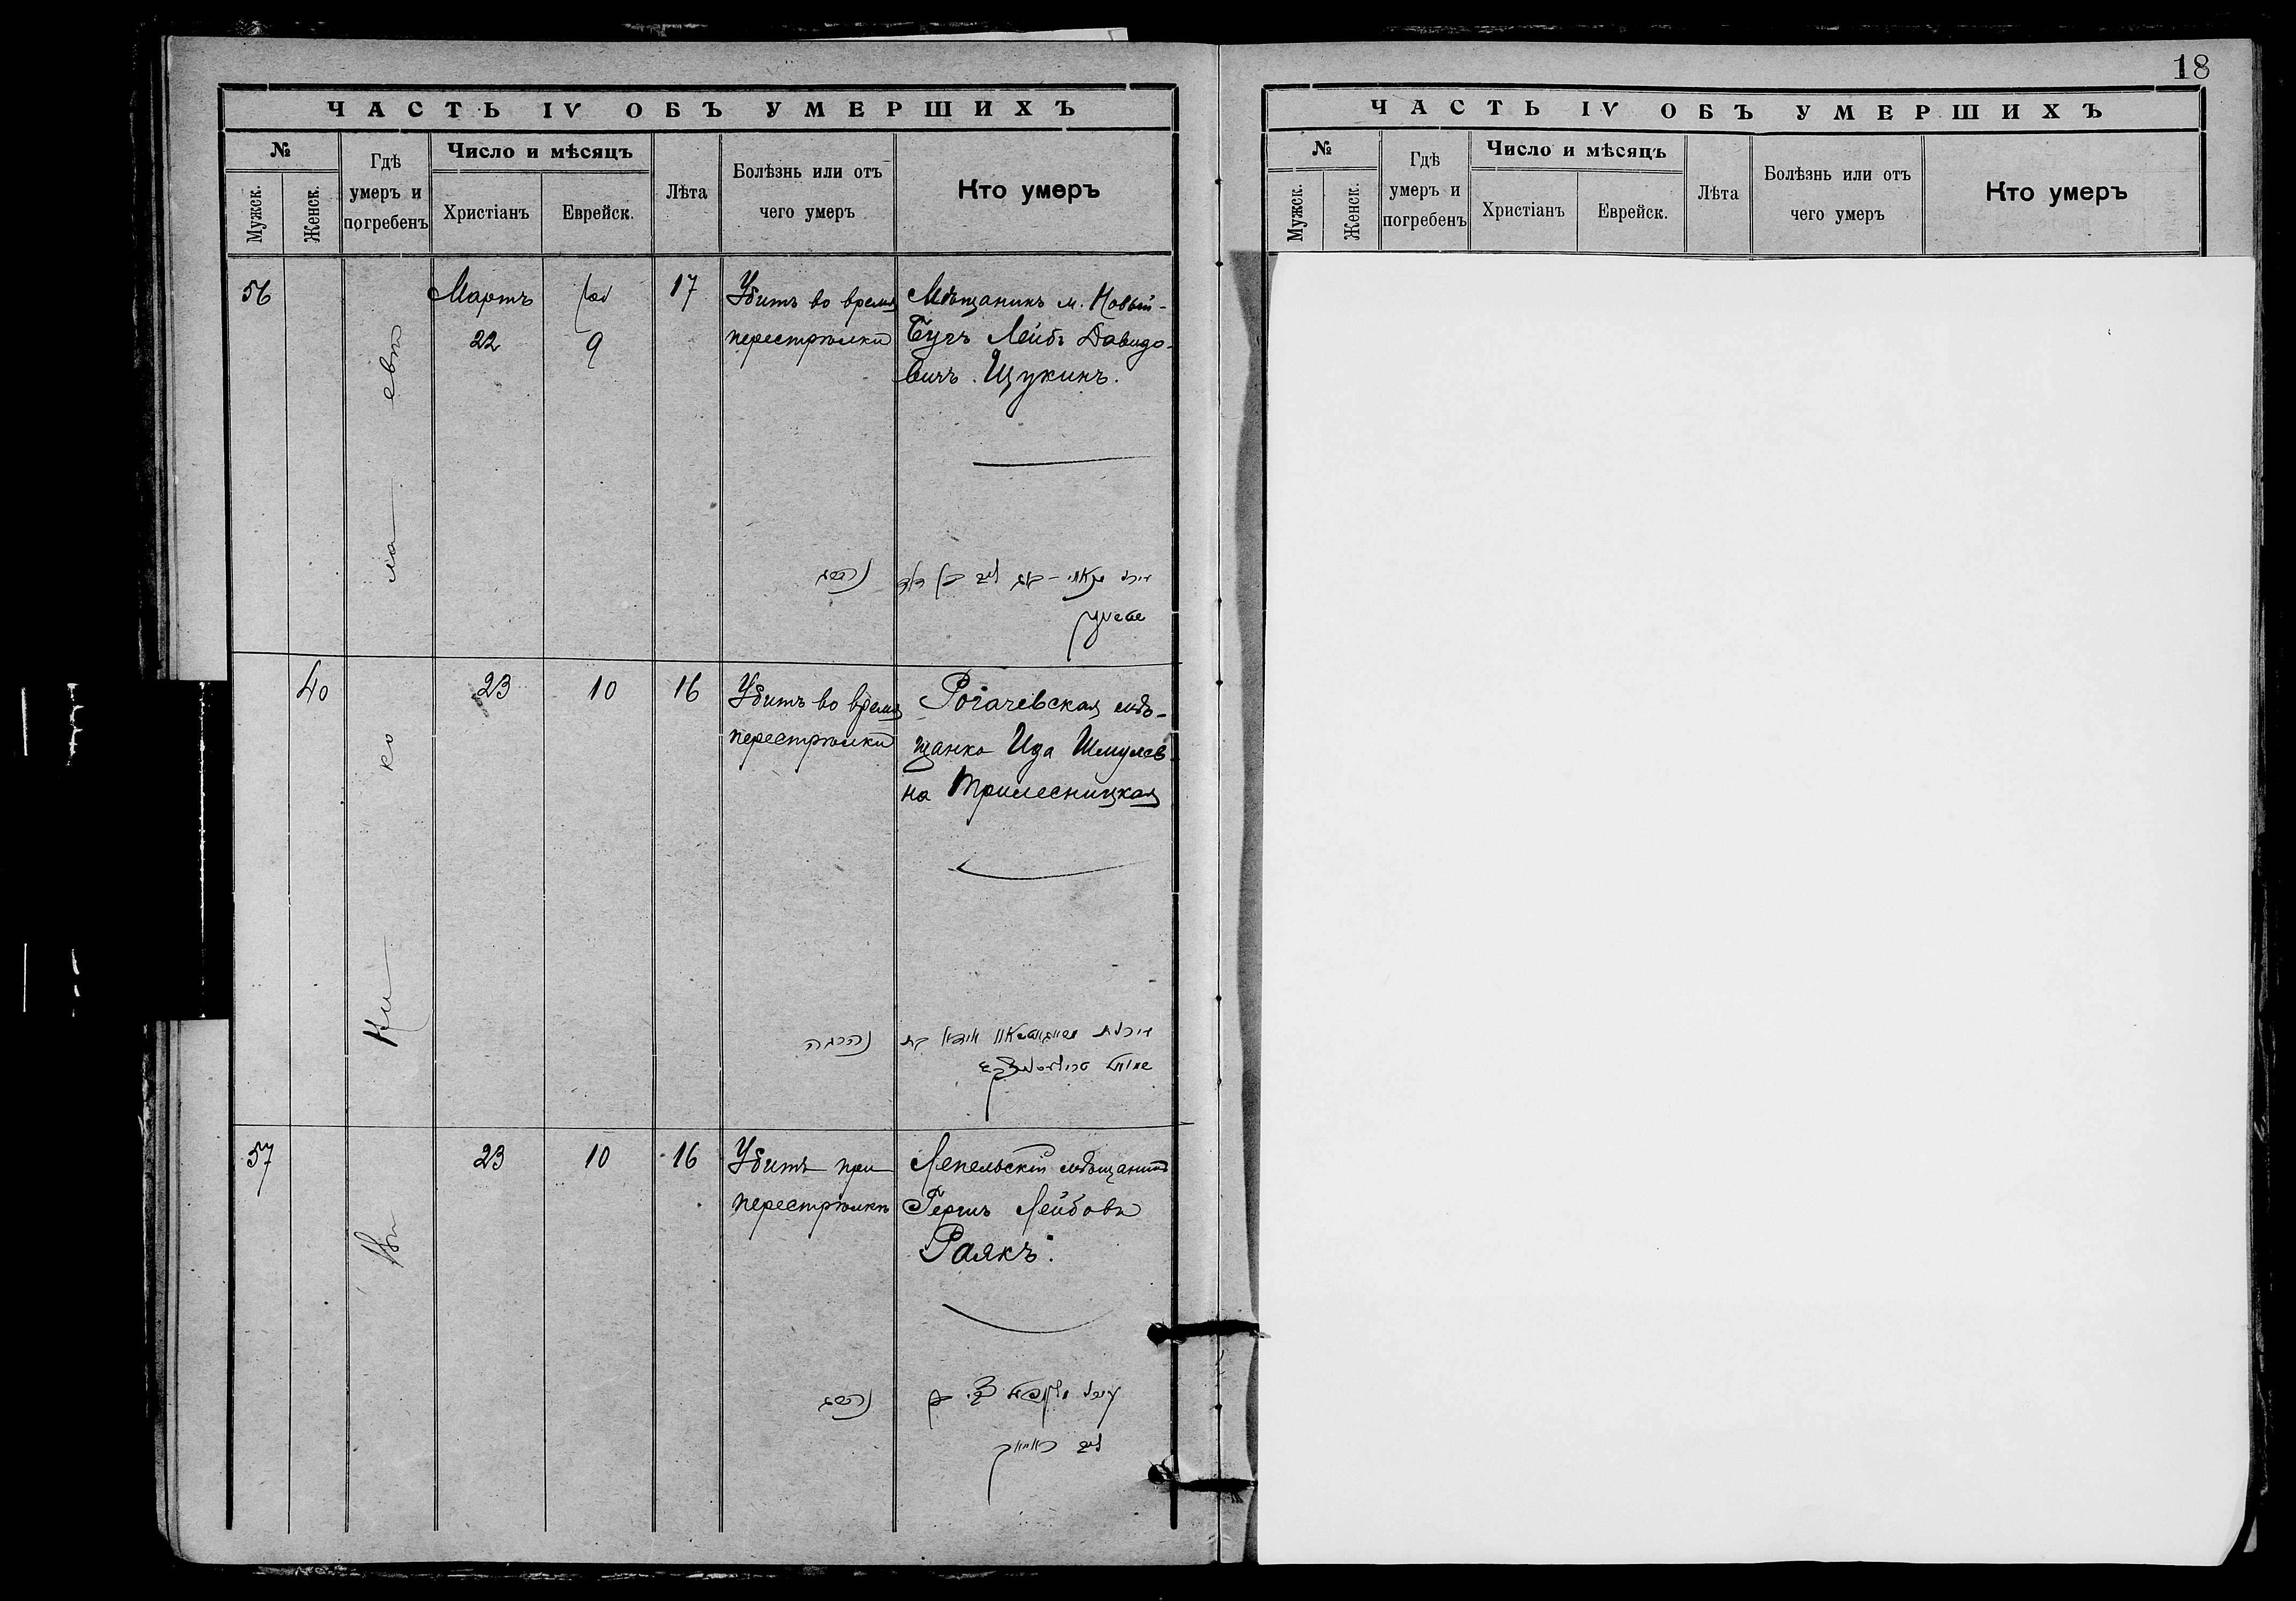 18
ЧАСТЬ IV ОБЪ УМЕРШИХЪ
№
Мужск.
Женск.
Гдѣ
умеръ и
погребенъ
Число и мѣсяцъ
Христіанъ
Еврейск.
Лѣта
Болѣзнь или отъ
чего умеръ
Кто умеръ
56
Мартъ
22
9
17
Убитъ во время
перестрѣлки
Мѣщанинъ м. Новый-
Бугъ Лейбъ Давидо-
вичъ Щукинъ.
נהרג
40
23
10
16
Убитъ во время
перестрѣлки
Рогачевская мѣ-
щанка Ида Шмулев
на Трилесницкая
נהרגה
57
23
10
16
Убитъ при
перестрѣлкѣ
Лепельскій мѣщанинъ
Гершъ Лейбовъ
Раякъ.
נהרג
Николаевѣ
ЧАСТЬ IV ОБЪ УМЕРШИХЪ
№
Мужск.
Женск.
Гдѣ
умеръ и
погребенъ
Число и мѣсяцъ
Христіанъ
Еврейск.
Лѣта
Болѣзнь или отъ
чего умеръ
Кто умеръ